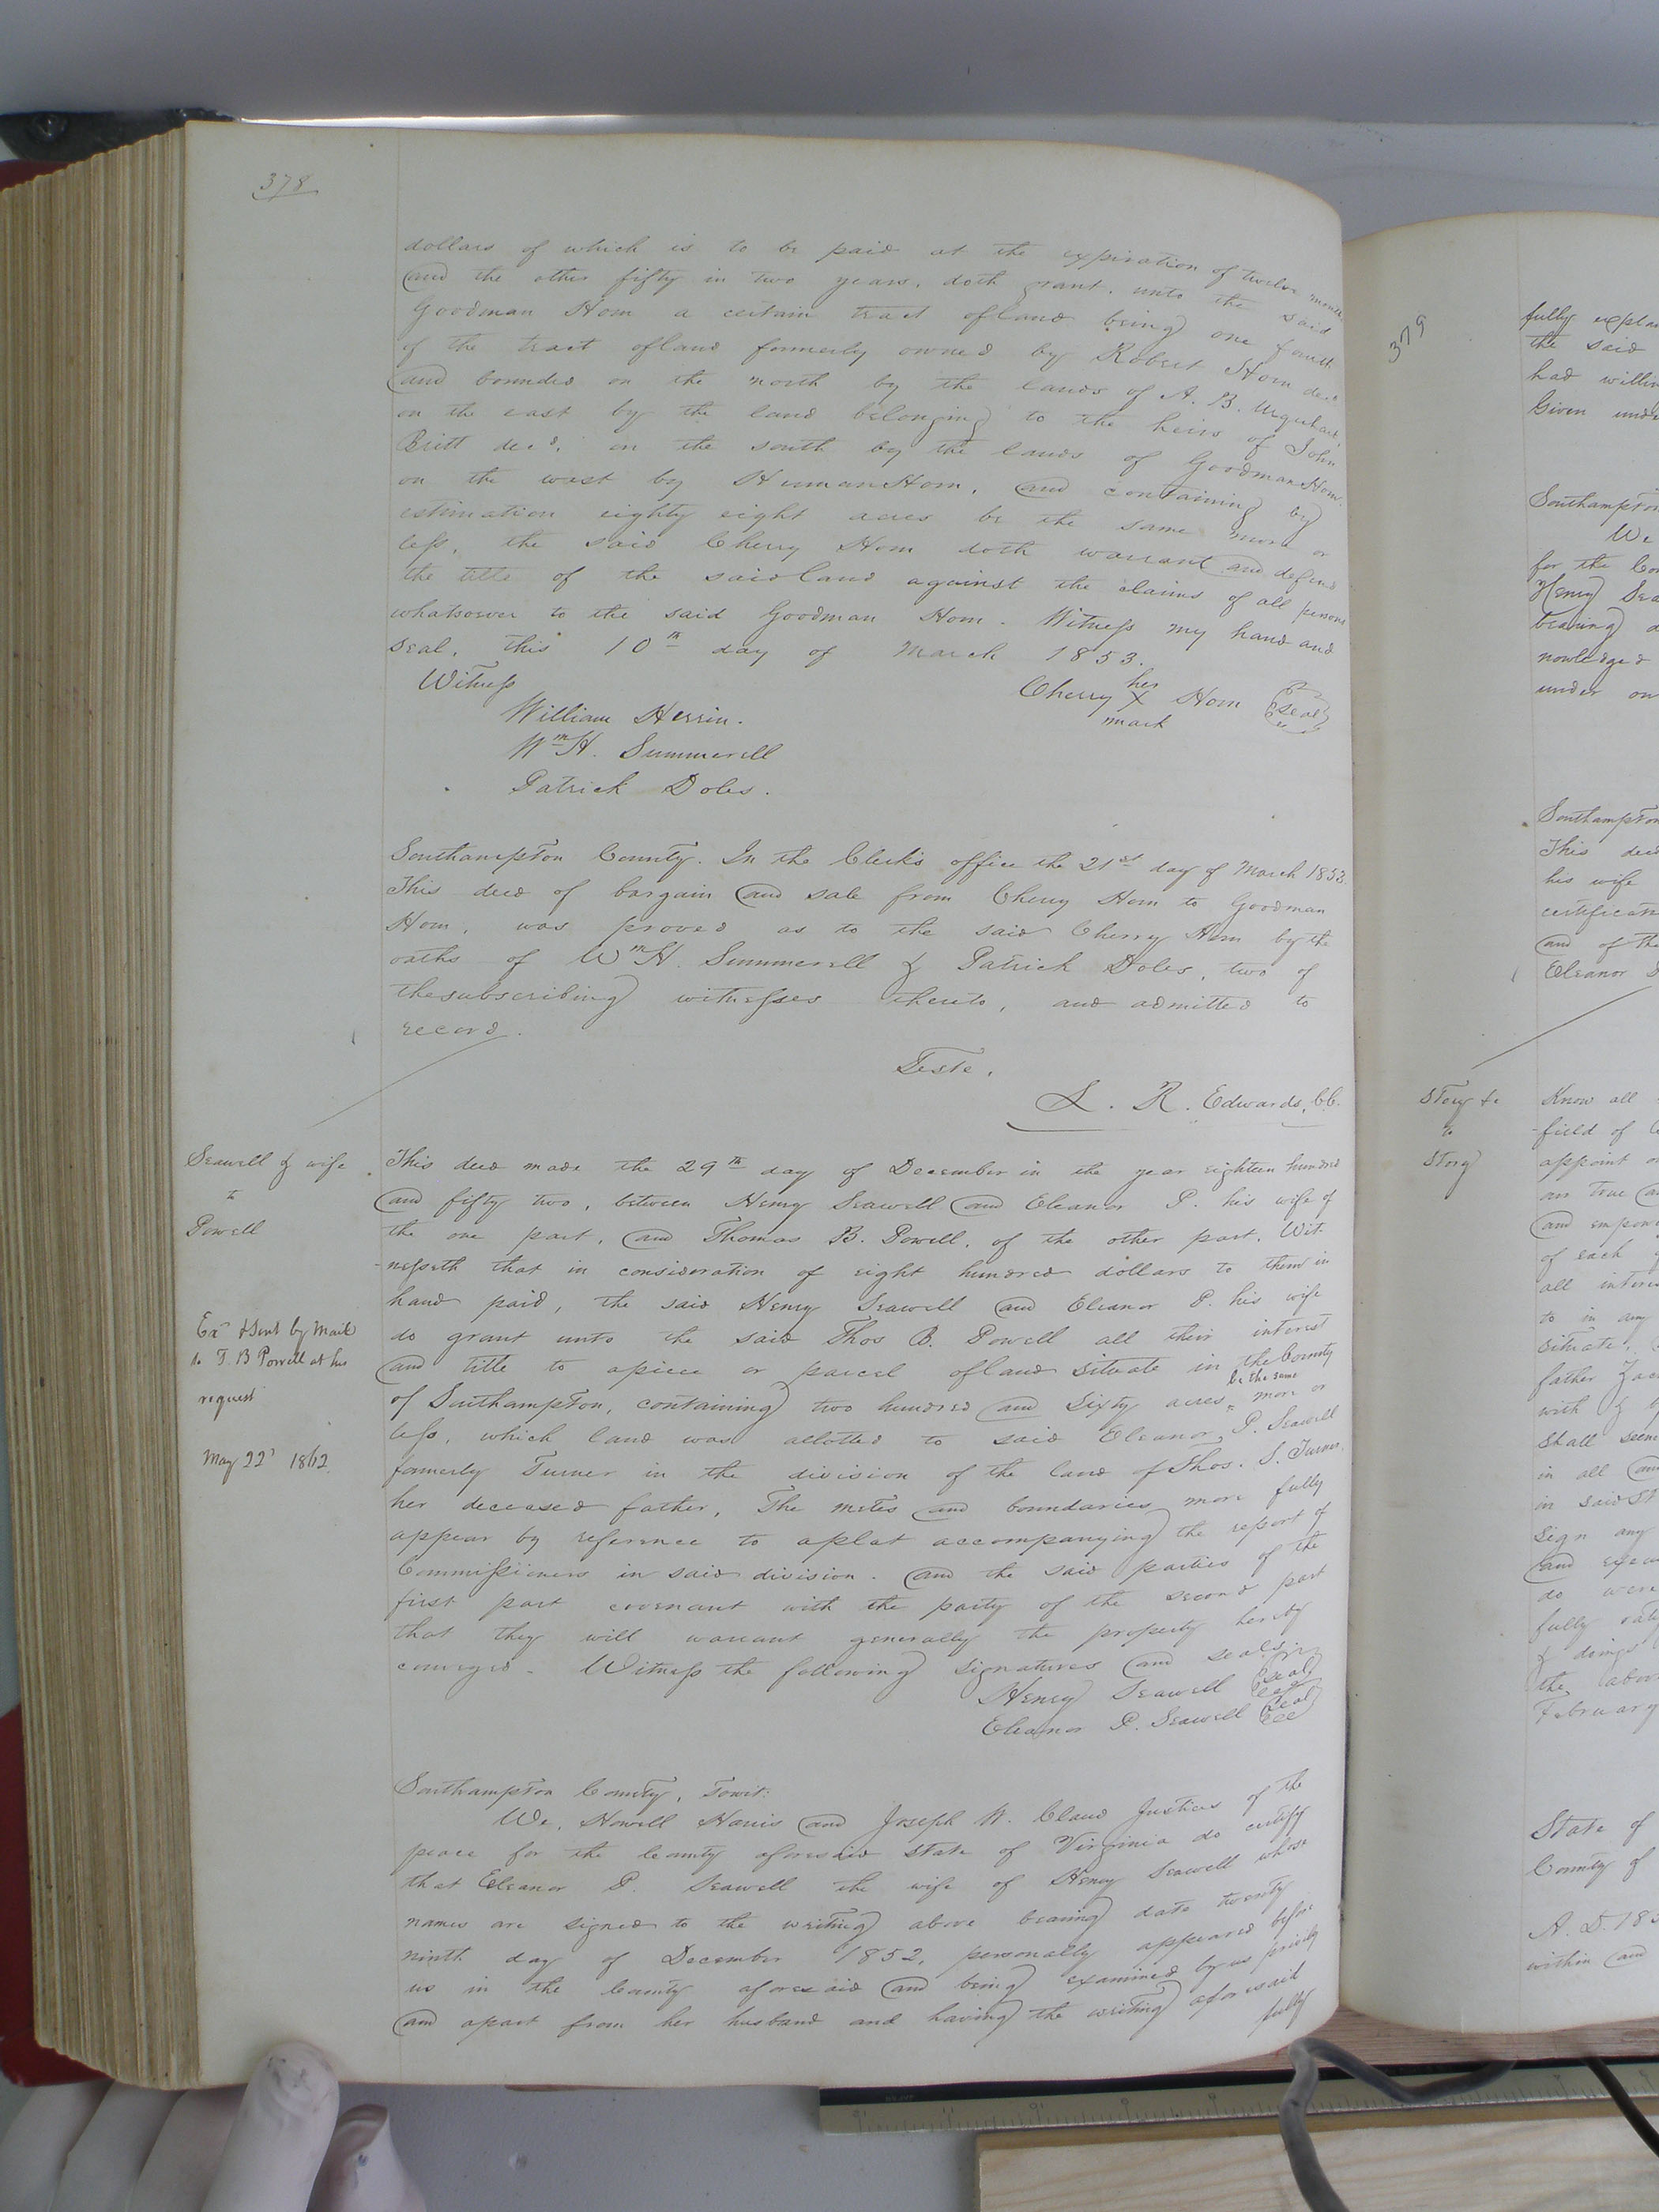 378
dollars of which is to be paid at the expiration of twelve months
and the other fifty in two years, doth grant, unto the said
Goodman Horn a certain tract of land being one fourth
of the tract of land formerly owned by Robert Horn decd
and bounded on the north by the lands of A. B. Urquhart,
on the east by the land belonging to the heirs of John
Britt decd, on the south by the lands of Goodman Horn
on the west by Herman Horn, and containing by
estimation eighty eight acres be the same more or
less, the said Cherry Horn doth warrant and defend
the title of the said land against the claims of all persons
whatsoever to the said Goodman Horn. Witness my hand and
seal, this 10th day of March 1853.
Witness
her
Cherry X Horn seal
mark
William Herrin.
Wm H. Summerell
Patrick Doles.
Southampton County. In the Clerk's office the 21st day of March 1853.
This deed of bargain and sale from Cherry Horn to Goodman
Horn, was proved as to the said Cherry Horn by the
oaths of Wm H. Summerell & Patrick Doles, two of
the subscribing witnesses thereto, and admitted to
record.
Teste,
L. R. Edwards, CC.
Seawell & wife
to
Powell
Exd & Sent by Mail
to T. B Powell at his
request
May 22d 1862.
This deed made the 29th day of December in the year eighteen hundred
and fifty two, between Henry Seawell and Eleanor P. his wife of
the one part, and Thomas B. Powell, of the other part, Wit-
-nesseth that in consideration of eight hundred dollars to them in
hand paid, the said Henry Seawell and Eleanor P. his wife
do grant unto the said Thos B. Powell all their interest
and title to a piece or parcel of land situate in the County
of Southampton, containing two hundred and sixty acres, be the same more or
less, which land was allotted to said Eleanor P. Seawell
formerly Turner in the division of the land of Thos. S. Turner
her deceased father, The metes and boundaries more fully
appear by reference to a plat accompanying the report of
Commissioners in said division. and the said parties of the
first part covenant with the party of the second part
that they will warrant generally the property hereby
conveyed. Witness the following signatures and seals
Henry Seawell seal
Eleanor P. Seawell seal
Southampton County, Towit:
We, Howell Harris and Joseph W. Claud Justices of the
peace for the County aforesaid State of Virginia do certify
that Eleanor P. Seawell the wife of Henry Seawell whose
names are signed to the writing above bearing date twenty
ninth day of December 1852, personally appeared before
us in the County aforesaid and being examined by us privily
and apart from her husband and having the writing aforesaid
fully
379
fully
the said
had
Given
Southampton
We
for the
Henry
bearing
nowledged
under
Southampton
This deed
his wife
and of the
Eleanor
Story &c
to
Story
Know all
field of
appoint
an true
and
of each
all
to in any
situate,
father
with &
shall seem
in all and
in said
sign any
and
do
fully
&
the above
February
State of
County of
A. D. 185
within and